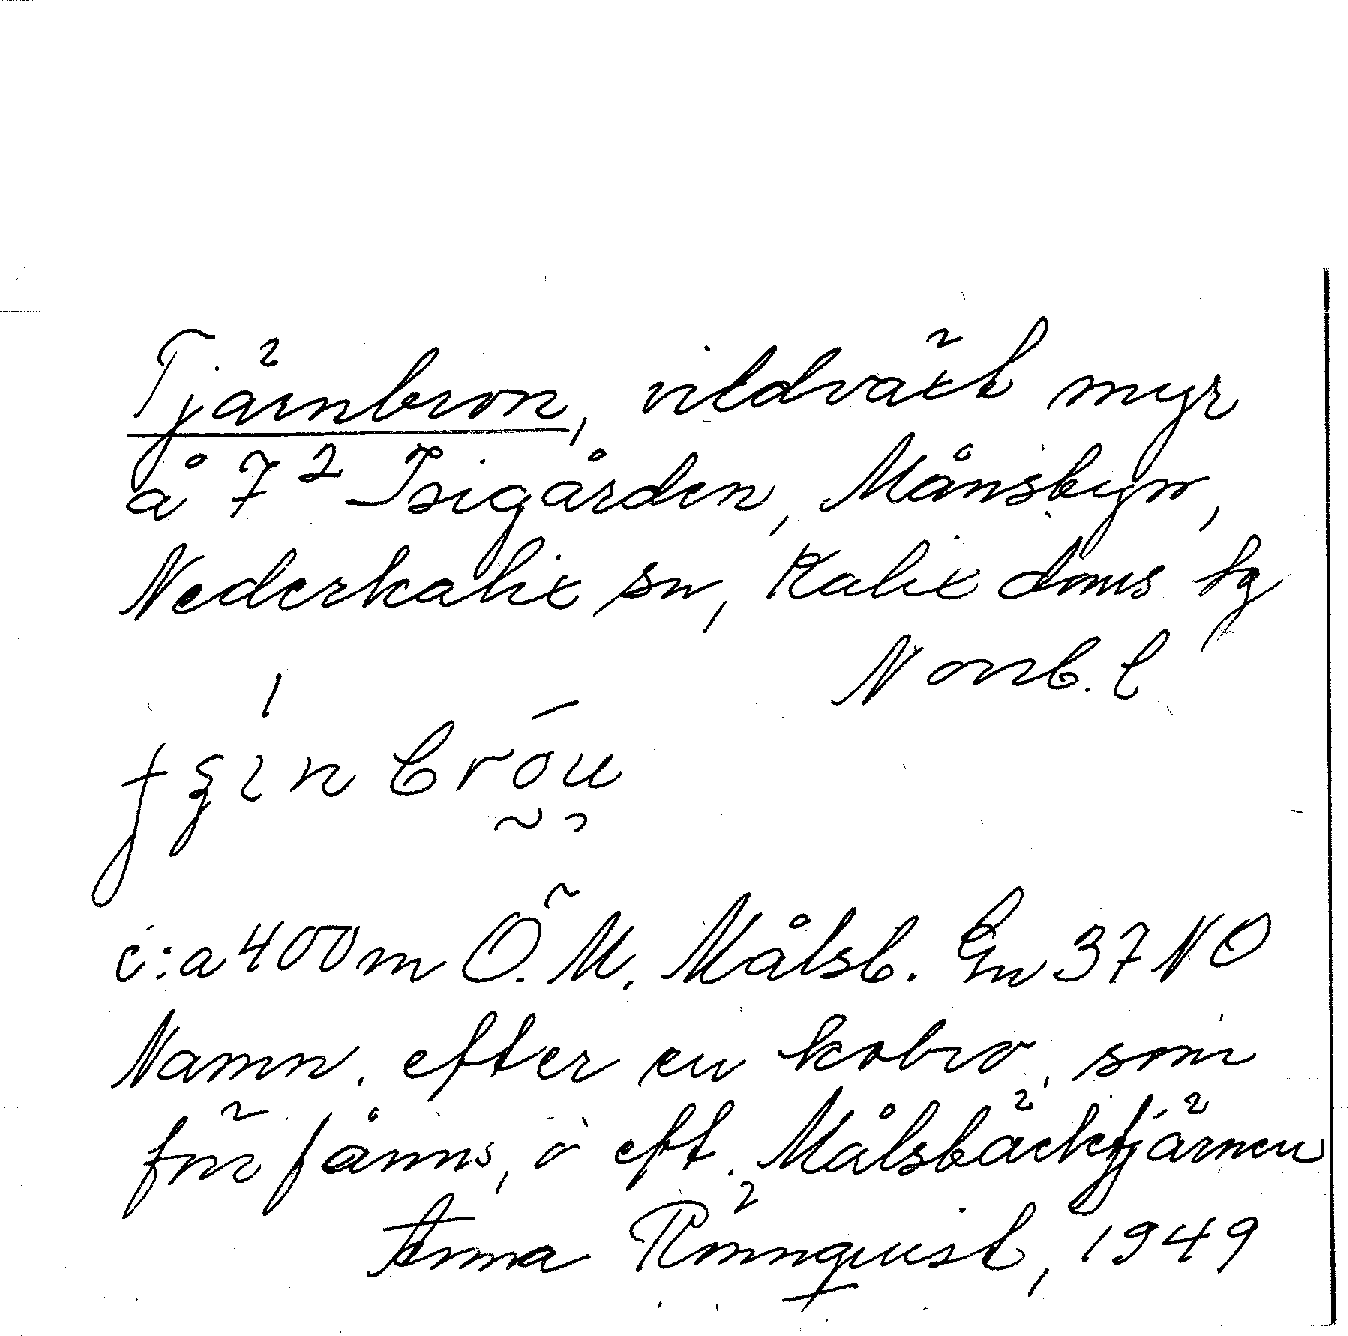 Tjärnbron, vildväxt myr
å 7² Isigården, Månsbyn,
Nederkalix sn, Kalix doms sg
Norrb. l
bróu
c:a 400 m Ö. M. Målsb. En 37 NO
Namn. efter en kobro, som
förr fanns, o eft. Målsbäckstjärnen
Anna Rönnquist, 1949